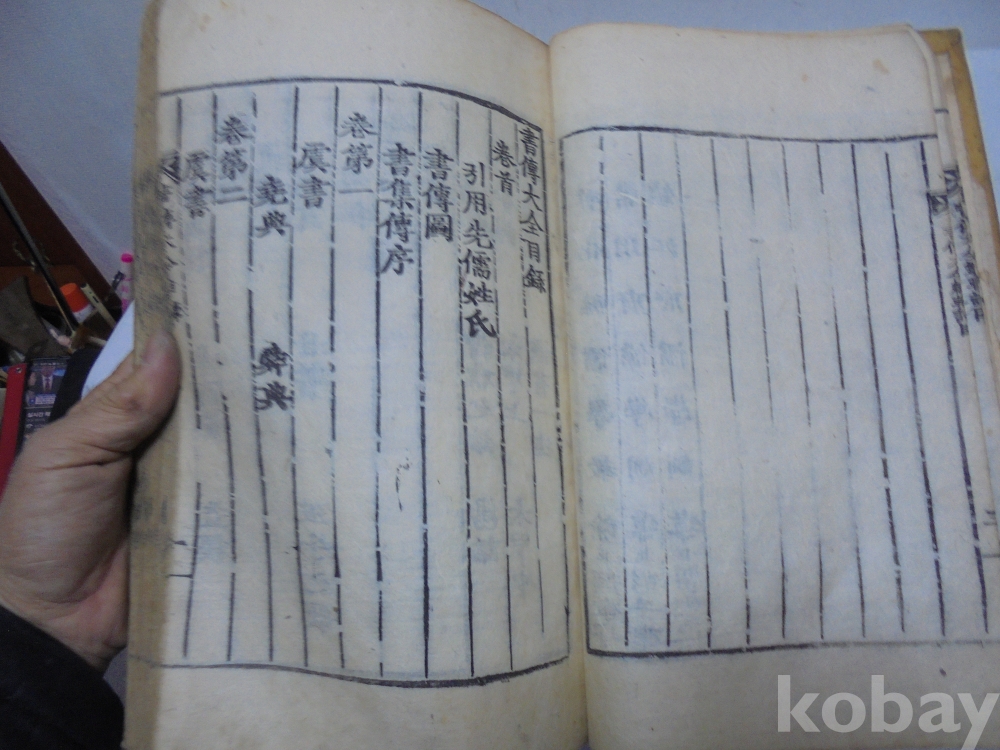 書傳大全目錄
卷首
引用先儒姓氏
書傳圖
書集傳序
卷第一
虞書
堯典 舜典
卷第二
虞書
kobay